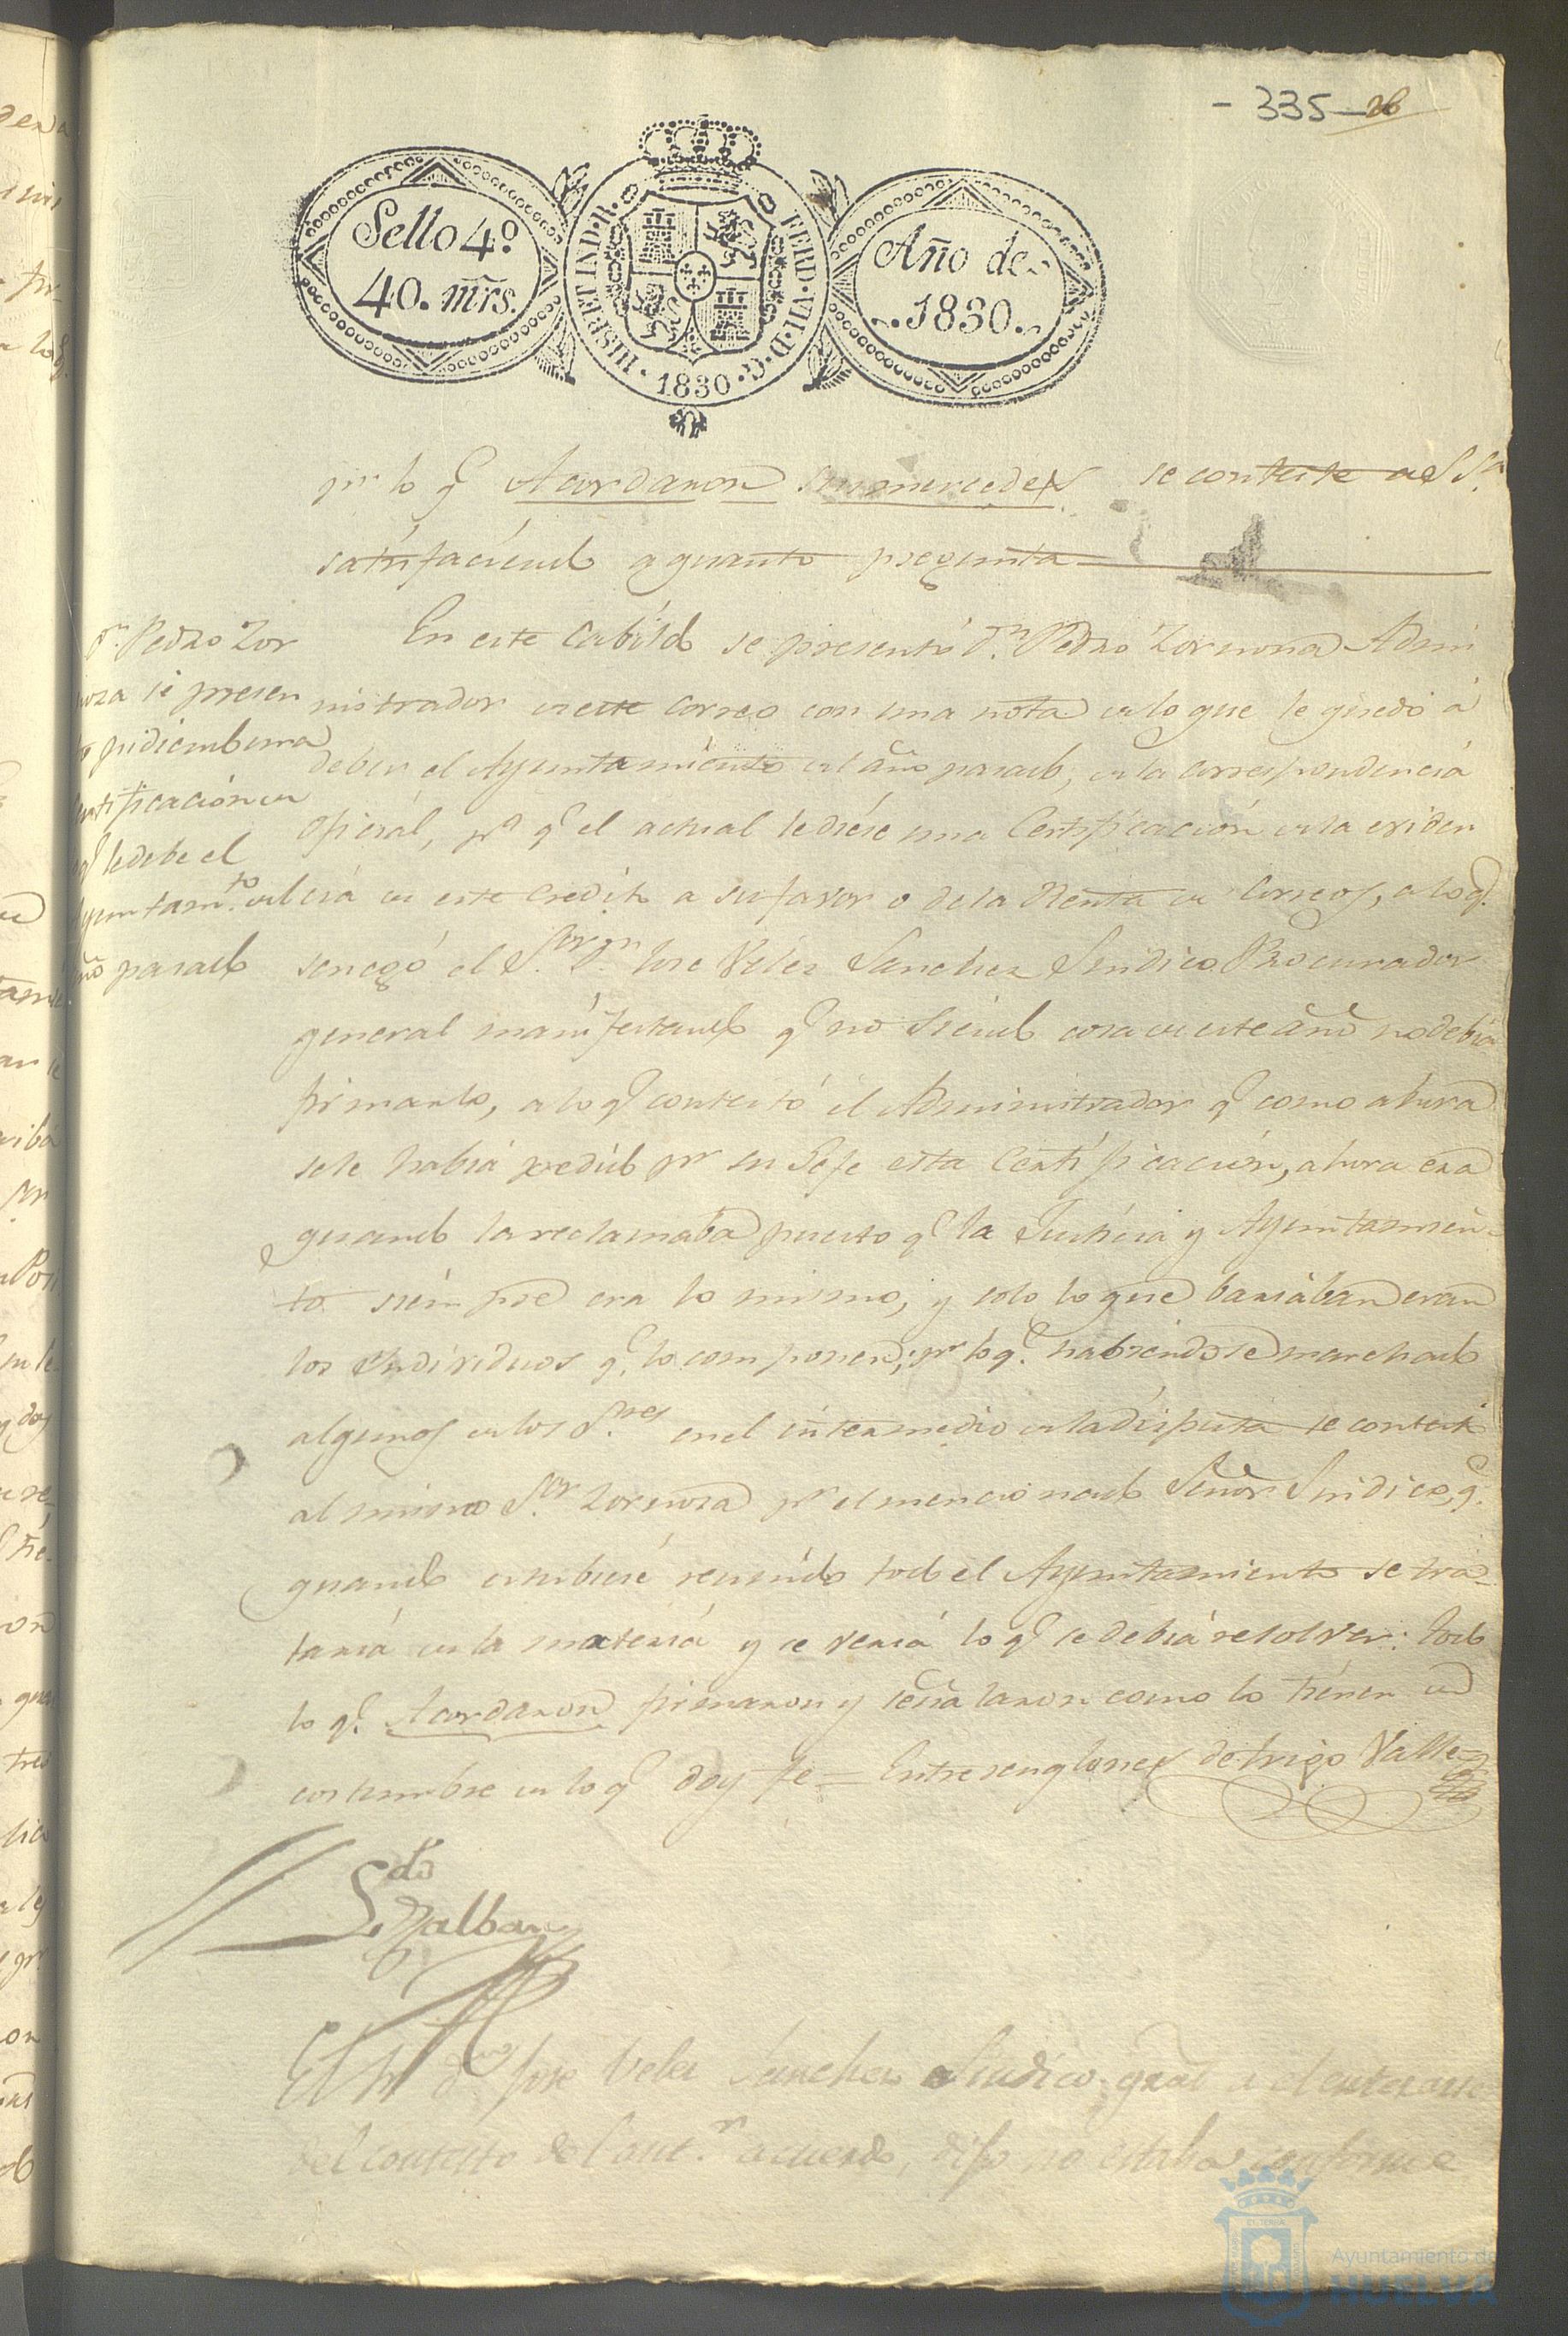 - 335 - 26
Sello 4.º
40. mrs.
HISP. ET IND. R. FERD. VII. D. G. 1830
Año de
1830.
pr. lo q.e Acordaron sus mercedes se conteste a S. S.a
satisfaciendo a quanto pregunta
D.n Pedro Zor
noza se presen
to pidiendo una
certificacion de
lo q.e le debe el
Ayuntam.to del
año pasado
En este Cabildo se presentó D.n Pedro Zornoza Admi
nistrador de este Correo con una nota de lo que le quedó á
deber el Ayuntamiento del año pasado, de la correspondencia
oficial, p.a q.e el actual le diese una Certificación de la eviden
cia de este credito a su favor o de la Renta de Correos, a lo q.e
se negó el S.or D.n Jose Velez Sanchez Sindico Procurador
general manifestando q.e no siendo cosa de este año no debia
firmarlo, a lo q.e contestó el Administrador q.e como ahora
se le habia pedido pr. su Gefe esta Certificacion, ahora era
quando la reclamaba puesto q.e la Justicia y Ayuntamien-
to siempre era lo mismo, y solo lo que bariaban eran
los Individuos q.e lo componen; pr. lo q.e habiendose marchado
algunos de los S.res en el intermedio de la disputa se contestó
al mismo S.or Zornoza pr. el mencionado Señor Sindico, q.e
quando estubiese reunido todo el Ayuntamiento se tra-
taria de la materia y se veria lo q.e se debia resolver: todo
lo q.e Acordaron firmaron y señalaron como lo tienen de
costumbre de lo q.e doy fe = Entrerenglones de trigo Valle
L.do
Nalban
El S.r D.n Jose Velez Sanchez Sindico gral a el enterarse
del contesto del ant.r acuerdo, dijo no estaba conforme
Ayuntamiento de
HUELVA